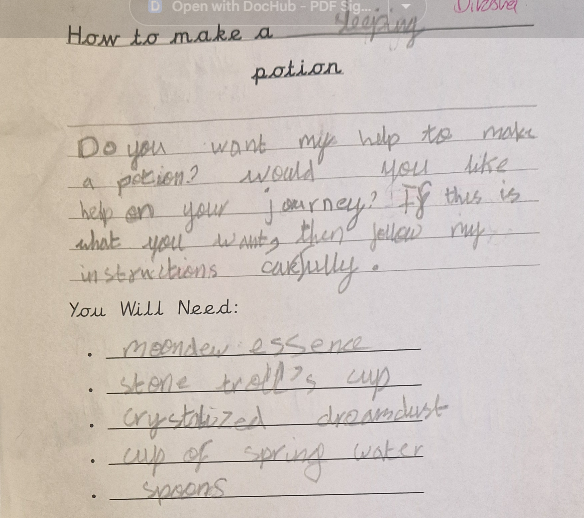 Open with DocHub - PDF Sig...
How to make a sleeping
potion
Do you want my help to make
a potion? would you like
help on your journey? If this is
what you want, then follow my
instructions carefully.
You Will Need:
• moondew essence
• stone troll's cup
• crystalized dreamdust
• cup of spring water
• spoons